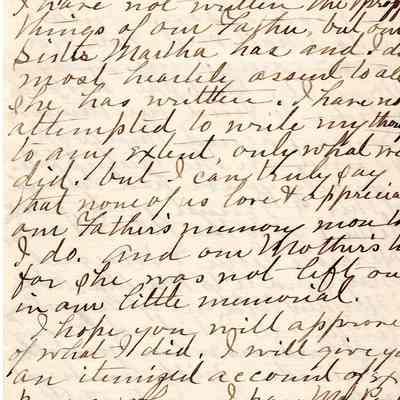 I have not written the prop
things of our Father, but our
Sister Martha has and I do
most heartily assent to all
she has written. I have no
attempted to write my thou
to any extent, only what we
did. but I can truly say
that none of us love & apprecia
our Father's memory more th
I do. and our Mother's t
for she was not left ou
in our little memorial.
I hope you will approve
of what I did. I will give yo
an itemized account of